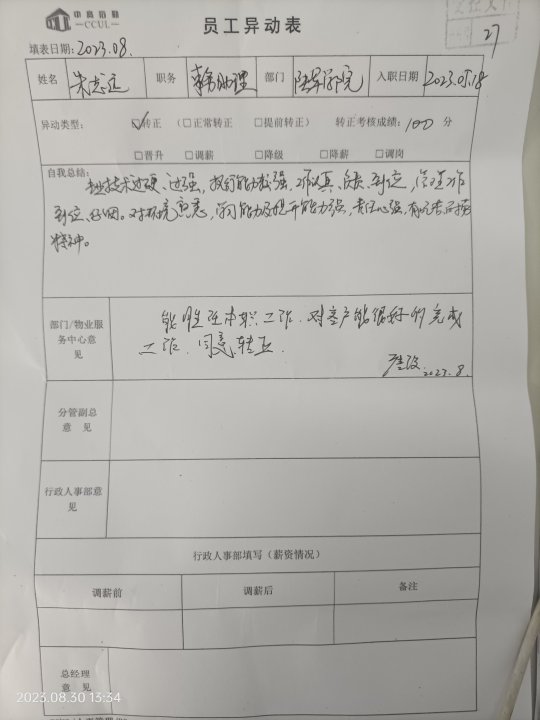 中宸后勤
—CCUL—
员工异动表
27
填表日期：2023.08.
姓名 朱志远 职务 事务助理 部门 陆军学院 入职日期 2023.05.18
异动类型： ☑转正 （□正常转正 □提前转正） 转正考核成绩：100 分
□晋升 □调薪 □降级 □降薪 □调岗
自我总结：
专业技术过硬、过强，执行能力较强，工作认真、负责、到位，管理工作
到位、学习能力及提升能力强，责任心强，有吃苦
精神。
部门/物业服
务中心意
见
能胜任本职工作，对客户能很好的完成
工作，同意转正．
2023.8.
分管副总
意 见
行政人事部意
见
行政人事部填写（薪资情况）
调薪前 调薪后 备注
总经理
意 见
2023.08.30 13:34